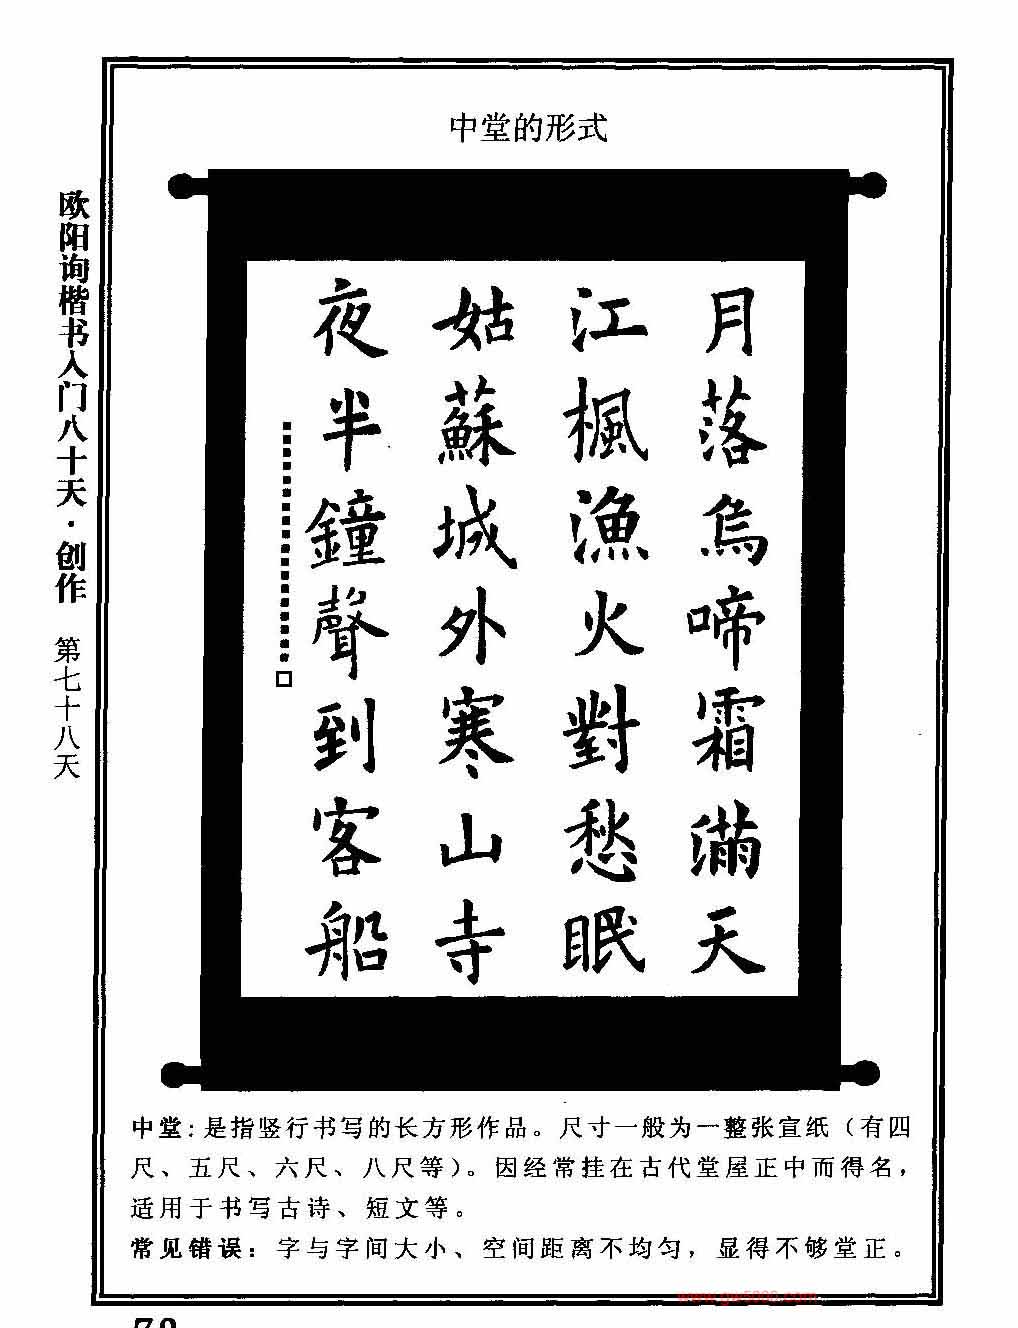 中堂的形式
欧阳询楷书入门八十天·创作 第七十八天
月落烏啼霜滿天
江楓漁火對愁眠
姑蘇城外寒山寺
夜半鐘聲到客船
中堂：是指竖行书写的长方形作品。尺寸一般为一整张宣纸（有四
尺、五尺、六尺、八尺等）。因经常挂在古代堂屋正中而得名，
适用于书写古诗、短文等。
常见错误：字与字间大小、空间距离不均匀，显得不够堂正。